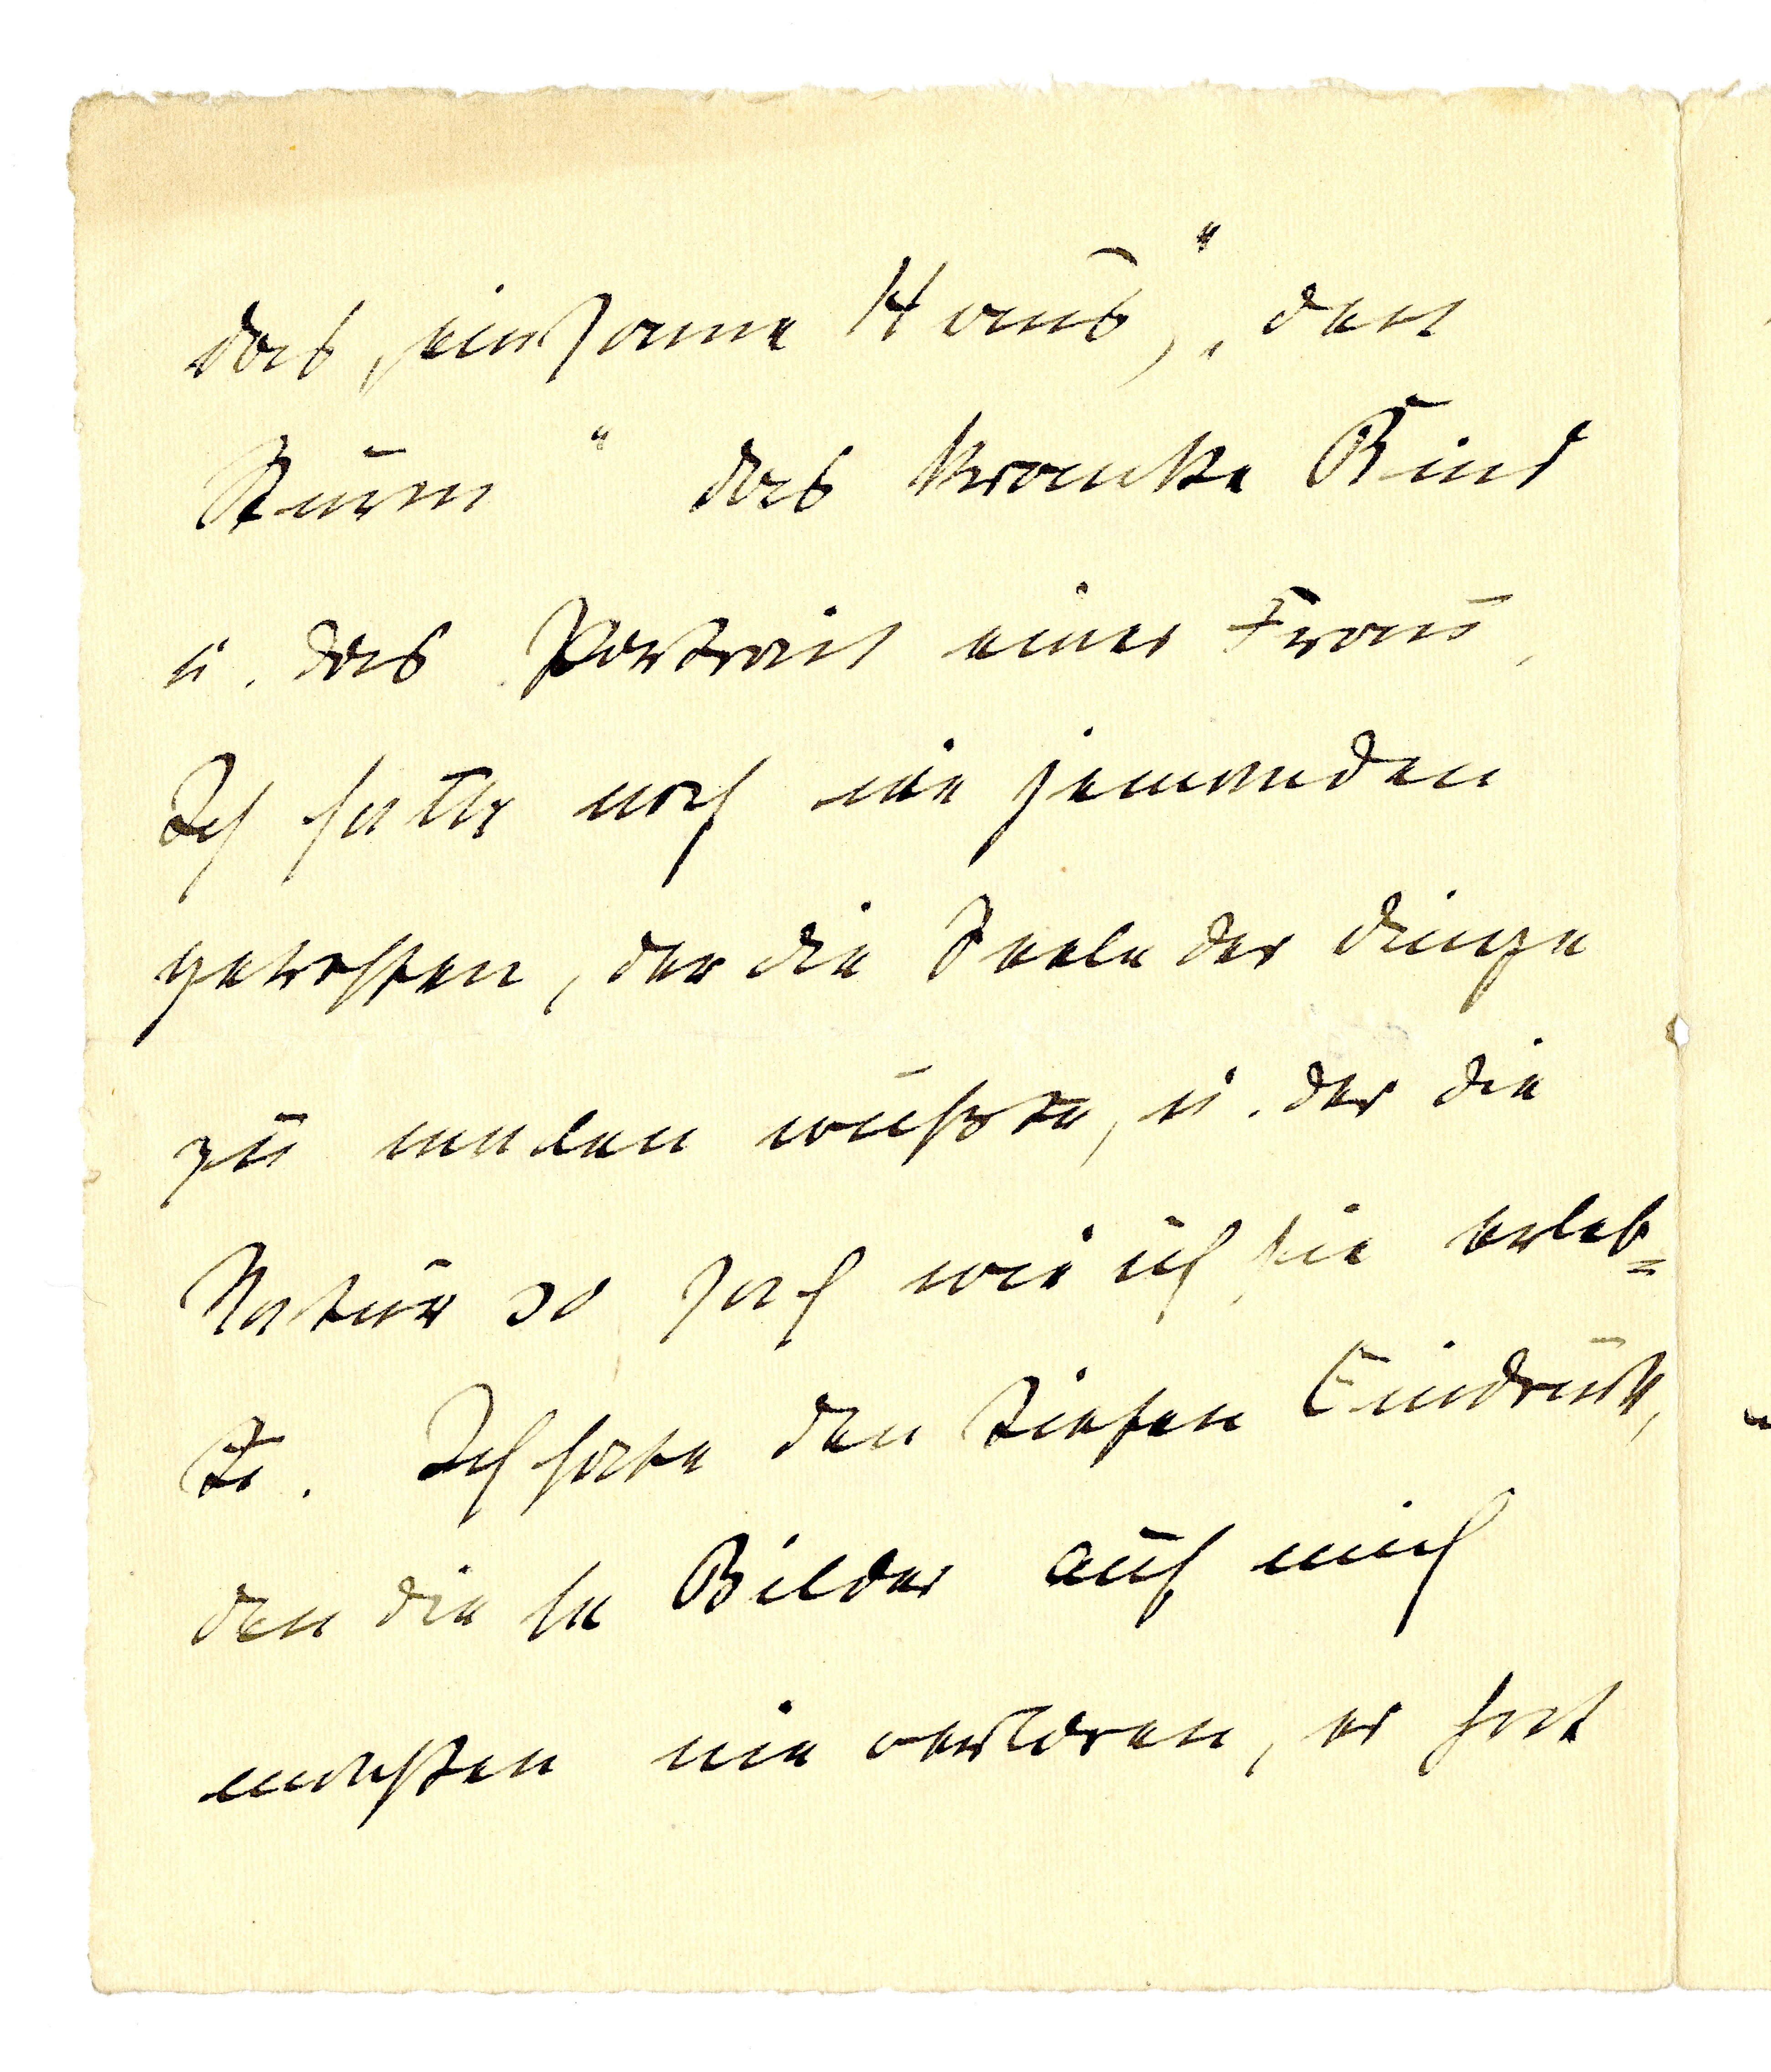 das „einsame Haus", „den
Sturm" das kranke Kind
u. das Portrait einer Frau,
Ich hatte noch nie jemanden
getroffen, der die Seele der Dinge
zu malen wußte, u. der die
Natur so sah wie ich sie erleb=
te. Ich habe den tiefen Eindruck,
den diese Bilder auf mich
machten nie verloren, er hat